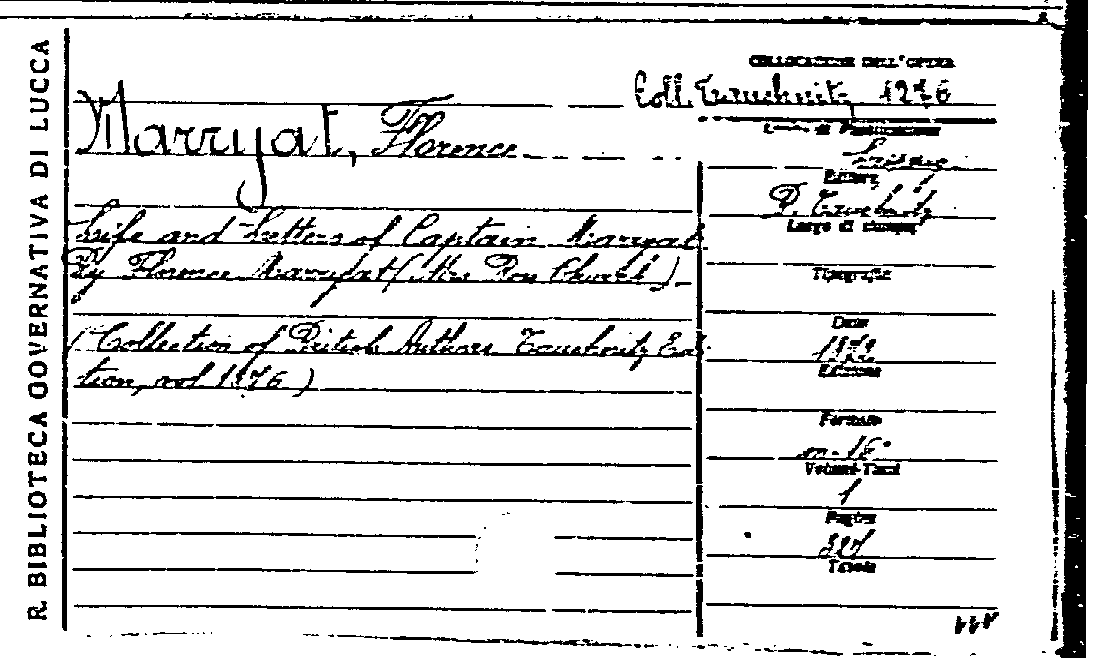 R. BIBLIOTECA GOVERNATIVA DI LUCCA
COLLOCAZIONE DELL'OPERA
Coll. Tauchnitz, 1276
Marryat, Florence
Life and Letters of Captain Marryat
By Florence Marryat (Mrs Ross Church)
(Collection of British Authors Tauchnitz Edi-
tion, vol 1276)
Luogo di Pubblicazione
Editore
B. Tauchnitz
Luogo di stampa
Tipografia
Data
1872
Edizione
Formato
in-16°
Volumi-Tomi
1
Pagine
Tavole